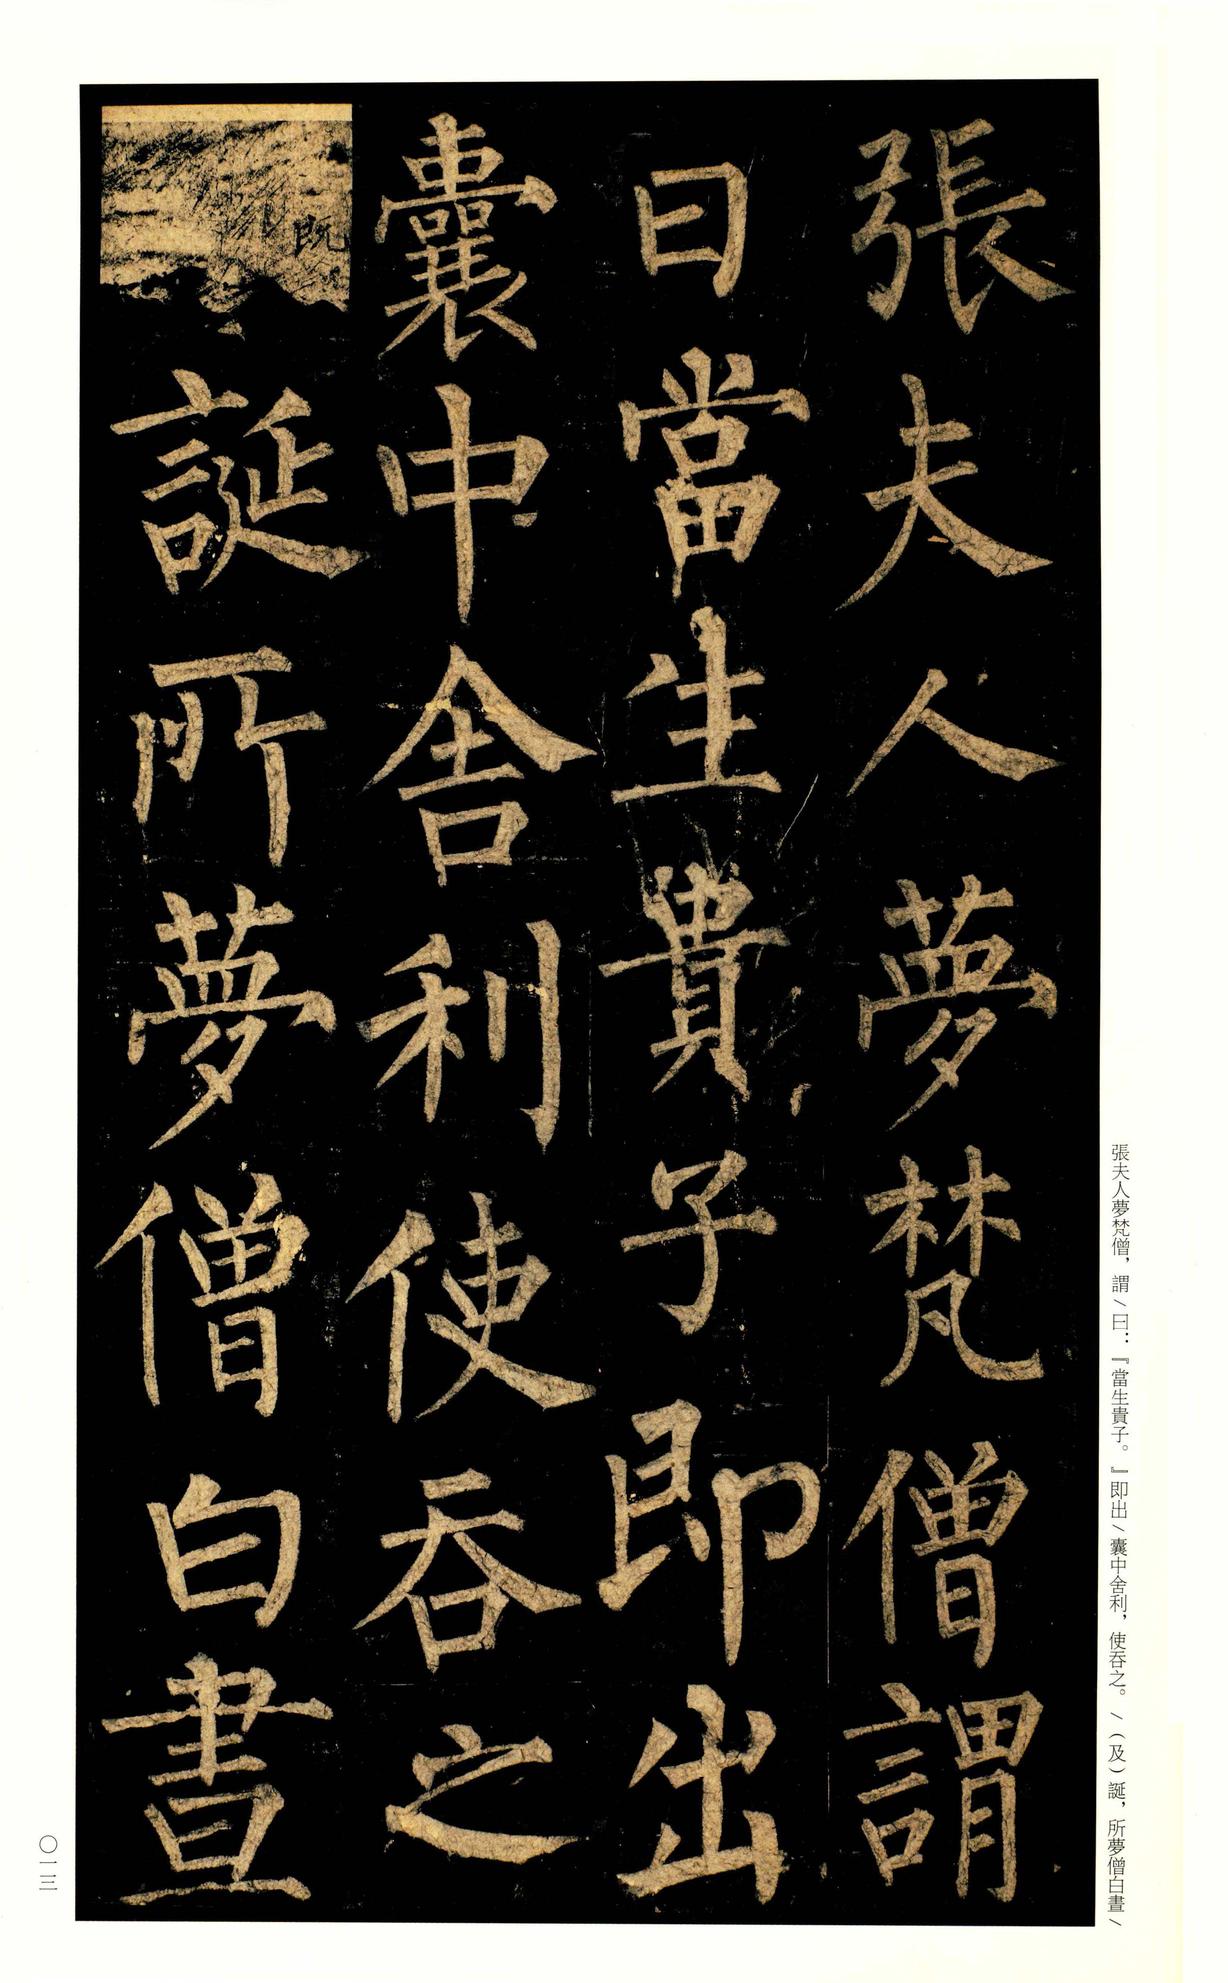 張夫人夢梵僧謂
曰當生貴子即出
囊中舍利使吞之
既
誕所夢僧白晝
張夫人夢梵僧，謂/曰：『當生貴子。』即出/囊中舍利，使吞之。/（及）誕，所夢僧白晝/
〇一三